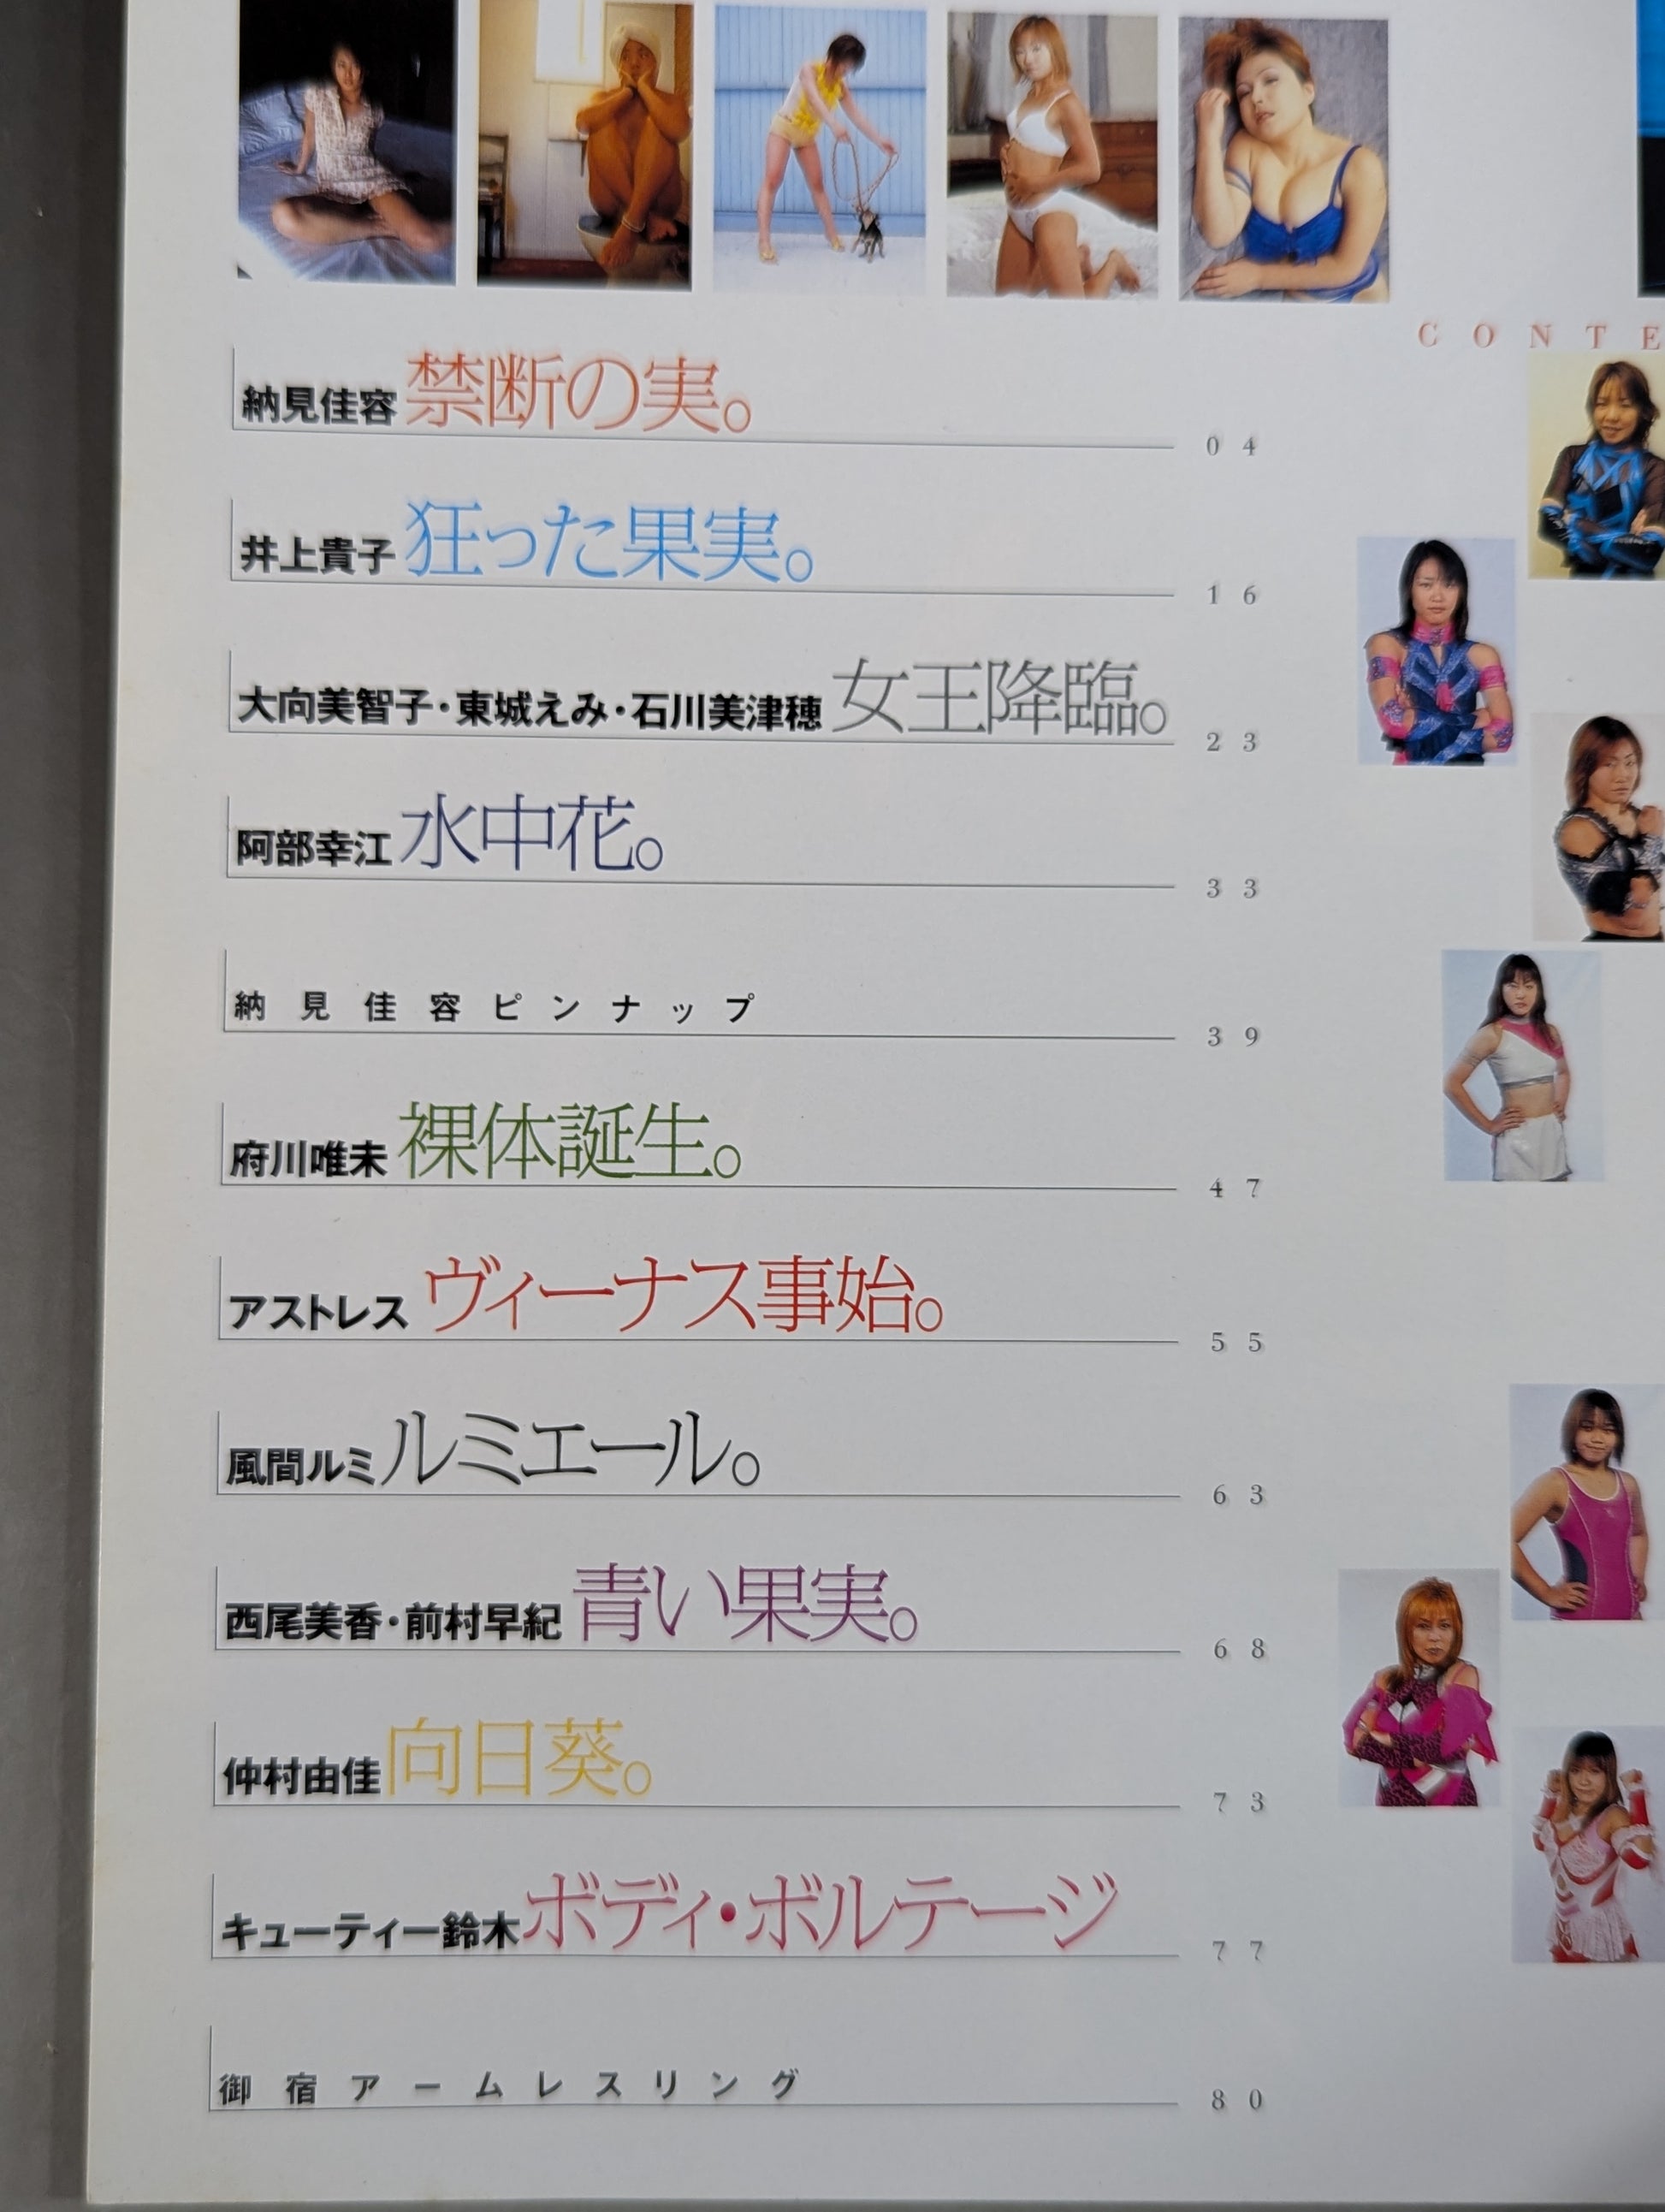 CONTE
納見佳容 禁断の実。
04
井上貴子 狂った果実。
16
大向美智子・東城えみ・石川美津穂 女王降臨。
23
阿部幸江 水中花。
33
納見佳容ピンナップ
39
府川唯未 裸体誕生。
47
アストレス ヴィーナス事始。
55
風間ルミ ルミエール。
63
西尾美香・前村早紀 青い果実。
68
仲村由佳 向日葵。
73
キューティー鈴木 ボディ・ボルテージ
77
御宿アームレスリング
80